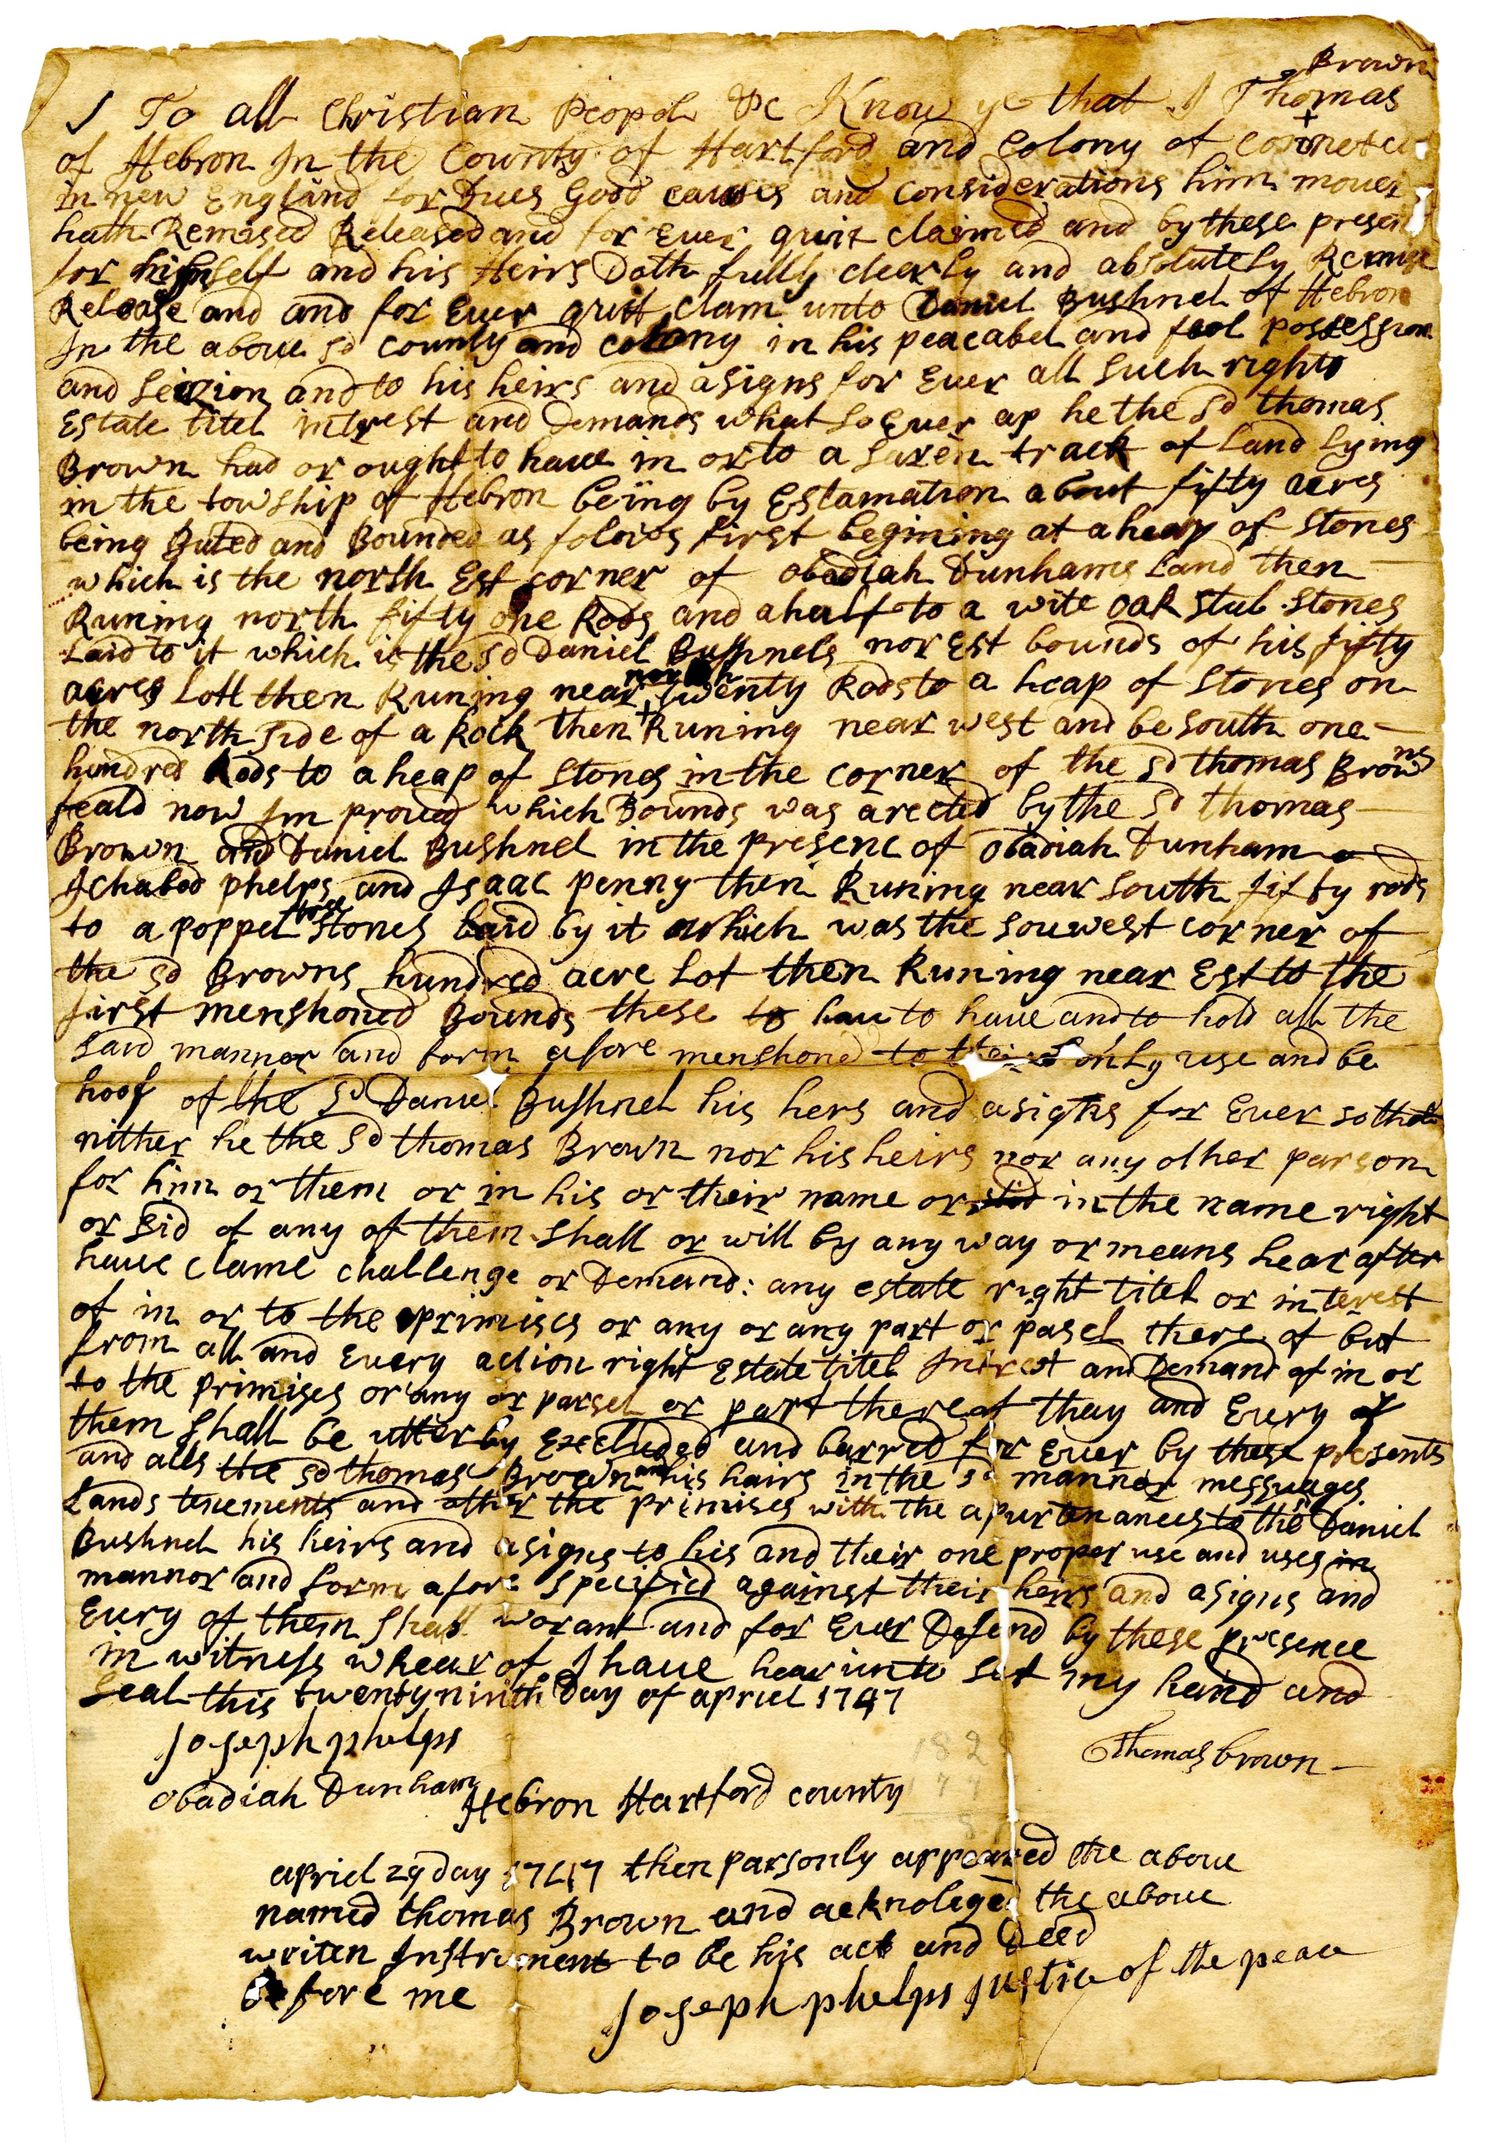 To all Christian Peopel &c Know ye that I Thomas Brown
of Hebron In the County of Hartford and Colony of Connetcut
in new England for Dues Good causes and Considerations him moueing
hath Remised Released and for Euer quit claimed and by these presents
for himself and his Heirs Doth fully cleerly and absolutely Remise
Release and and for Euer quitt clam unto Daniel Bushnel of Hebron
In the aboue sd county and colony in his peacabel and fool possession
and Seizion and to his heirs and asigns for Euer all such right
Estate titel intrest and Demands what so Euer as he the sd thomas
Brown had or ought to haue in or to a saren track of Land Lying
in the towship of Hebron being by Estamation about fifty acres
being Buted and Bounded as folows first begining at a heap of stones
which is the north Est corner of obadiah Dunhams Land then
Runing north fifty one Rods and a half to a wite oak stub stones
Laid to it which is the sd Daniel Bushnels nor Est bounds of his fifty
acres Lott then Runing near north twenty Rods to a heap of stones on
the north side of a Rock then Runing near west and be south one
hundred Rods to a heap of stones in the corner of the sd thomas Browns
feald now Improued which Bounds was arected by the sd thomas
Brown and Daniel Bushnel in the presenc of obadiah Dunham
Ichabod phelps and Isaac penny then Runing near south fifty rods
to a poppel tree stones laid by it which was the souwest corner of
the sd Browns hundred acre Lot then Runing near Est to the
first menshoned Bounds these to hau to haue and to hold all the
said mannor and form afore menshoned to only use and be
hoof of the sd Daniel Bushnel his hers and asigns for Euer so that
nither he the sd thomas Brown nor his heirs nor any other parson
for him or them or in his or their name or in the name right
or sid of any of them shall or will by any way or means hear after
haue clame challenge or Demand: any estate right titel or interest
of in or to the primises or any or any part or pasel there of but
from all and Euery action right Estate titel Intrest and Demand of in or
to the primises or any or parsel or part thereof thay and Eury of
them shall be utterby Excluded and barred for Euer by these presents
and alls the sd thomas Brown and his hairs in the sd mannor messuages
Lands tenements and other the primises with the apurtenances to the sd Daniel
Bushnel his heirs and asigns to his and their one proper use and uses in
mannor and form afore specified against their heirs and asigns and
Eury of them shall worant and for Euer Defend by these presence
in witness whear of I haue hear unto set my hand and
Seal this twenty ninth Day of apriel 1747
Joseph phelps
Thomas brown
obadiah Dunham
Hebron Hartford county
apriel 29 day 1747 then parsonly appeared the aboue
named thomas Brown and acknoliged the aboue
writen Instrument to be his act and Deed
before me
Joseph phelps Justice of the peace